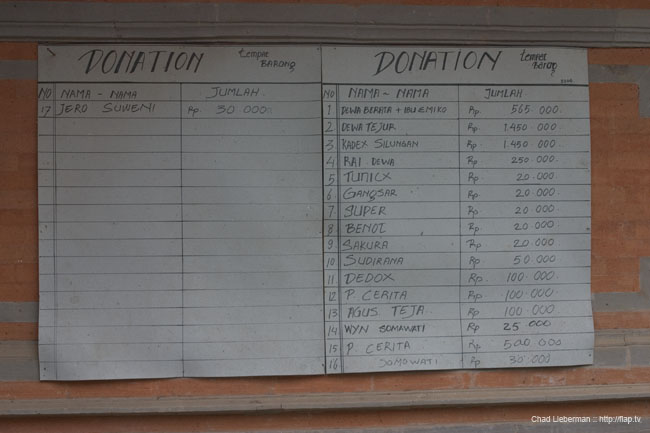 DONATION tempat BARONG
NO NAMA - NAMA JUMLAH
17 JERO SUWENI Rp. 30 000
DONATION tempat Barong
NO NAMA ~ NAMA JUMLAH
1 DEWA BERATA + IBU EMIKO Rp. 565 000.
2 DEWA TEJUR Rp. 1.450 000
3 KADEX SILUNGAN Rp 1.450 000
4 RAI DEWA Rp. 250 000
5 TUNICX Rp 20 000
6 GANGSAR Rp. 20 000
7 SUPER Rp. 20 000
8 BENOT Rp. 20 000
9 SAKURA Rp. 20 000
10 SUDIRANA Rp. 50 000
11 DEDOX Rp. 100 000
12 P. CERITA Rp. 100 000
13 AGUS TEJA Rp. 100 000
14 WYN SOMAWATI Rp 25 000
15 P. CERITA Rp. 500 000
16 SOMOWATI Rp. 30 000
Chad Lieberman :: http://flap.tv